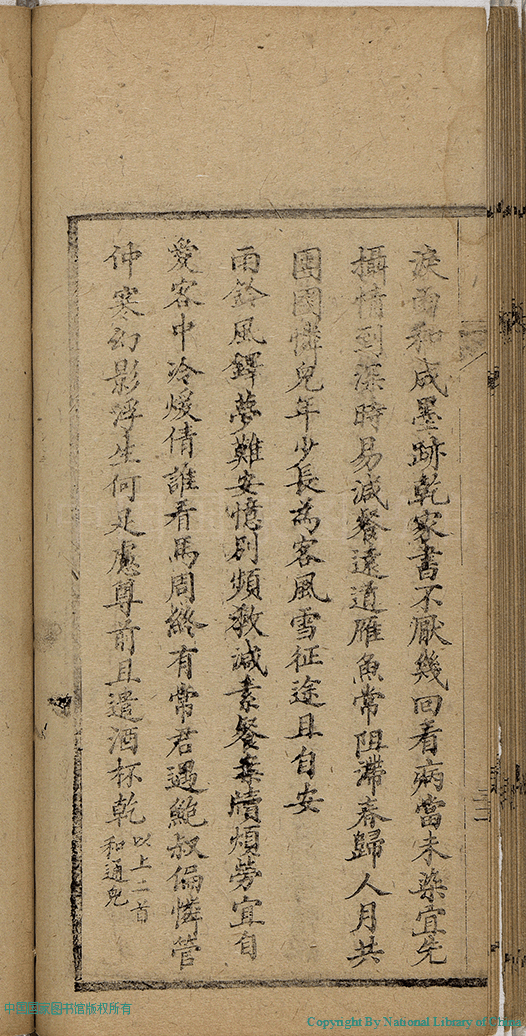 淚面和成墨跡乾家書不厭幾回看病當未染宜先
攝情到深時易減餐遠道雁魚常阻滯春歸人月共
團圞憐兒年少長為客風雪征途且自安
雨鈴風鐸夢難安憶別頻教減素餐案牘煩勞宜自
愛客中冷煖倩誰看馬周終有常君遇鮑叔偏憐管
仲寒幻影浮生何足慮尊前且遣酒杯乾以上二首和通兒
中国国家图书馆版权所有
Copyright By National Library of China